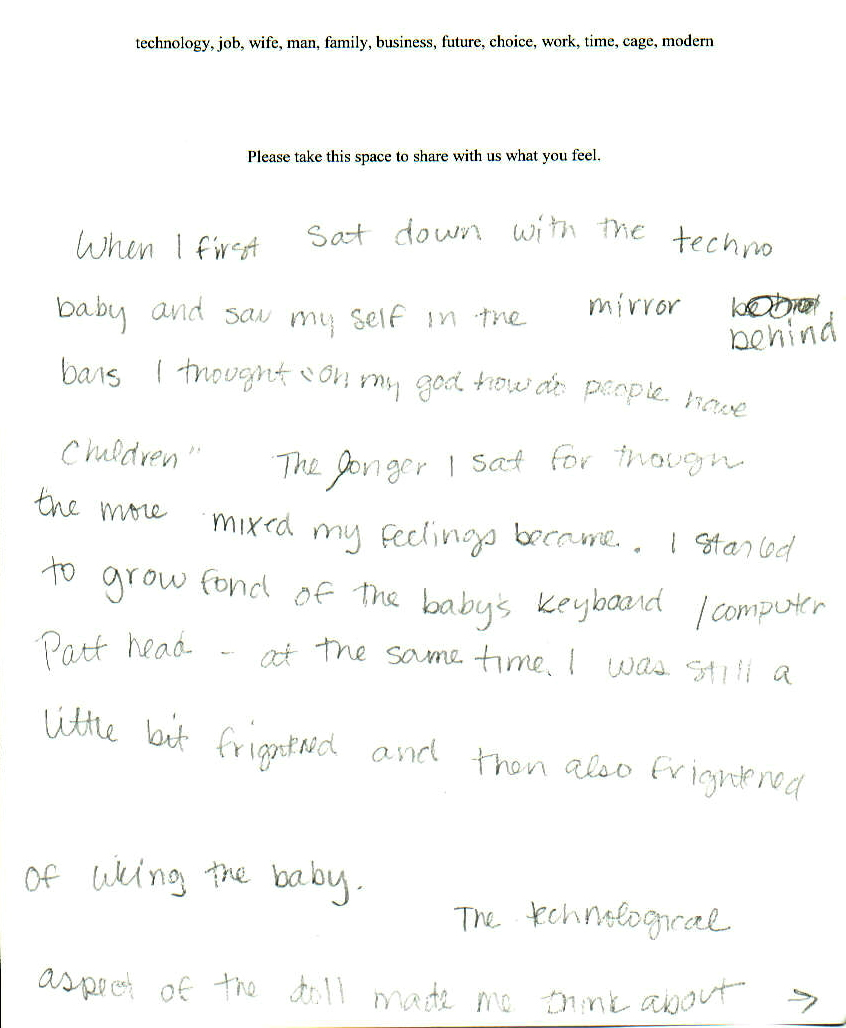 technology, job, wife, man, family, business, future, choice, work, time, cage, modern
Please take this space to share with us what you feel.
When I first sat down with the techno
baby and saw my self in the mirror
behind
bars I thought "oh my god how do people have
children" The longer I sat for though
the more mixed my feelings became. I started
to grow fond of the baby's keyboard / computer
Part head - at the same time. I was still a
little bit frightened and then also frightened
of liking the baby.
The technological
aspect of the doll made me think about →